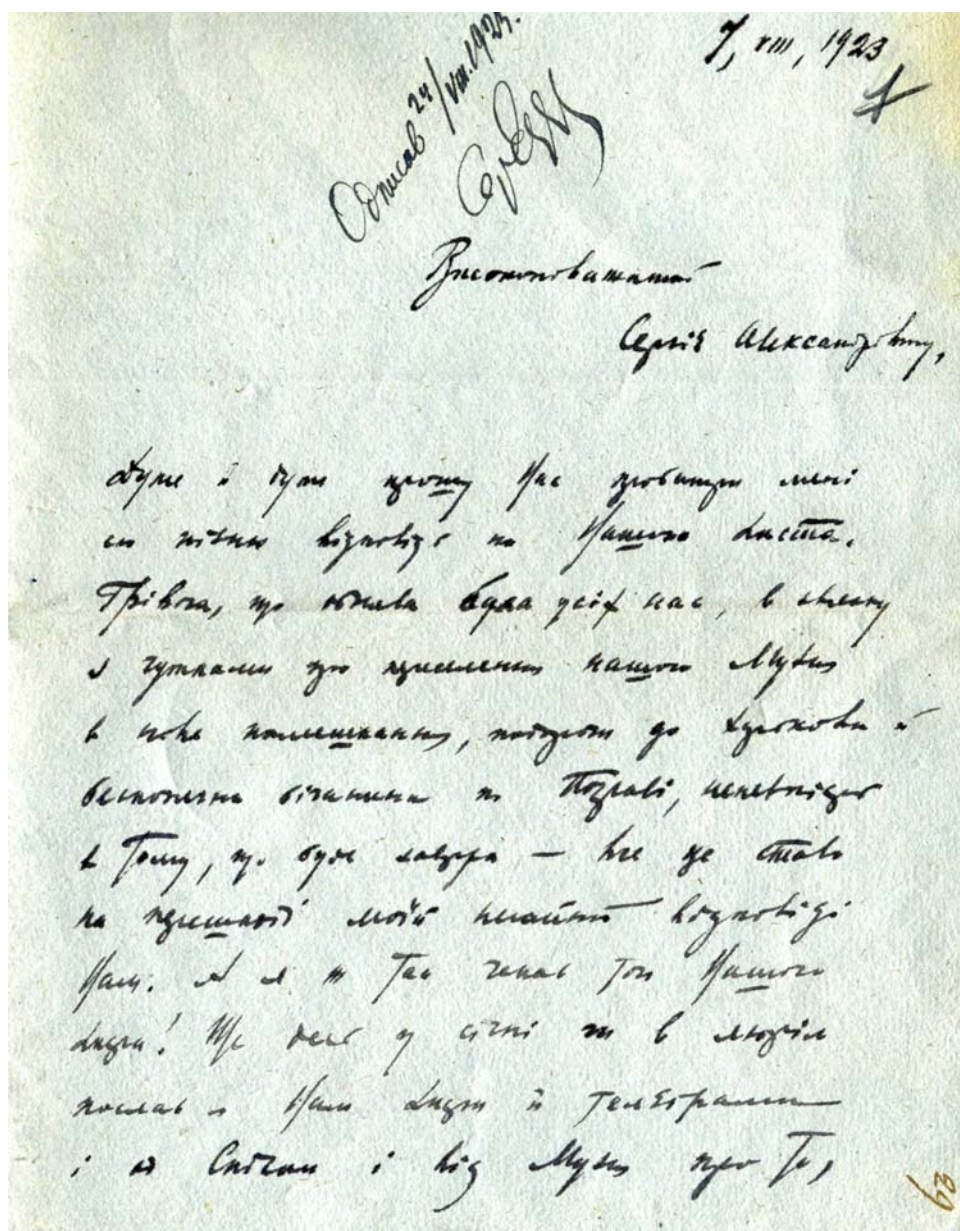 7, VIII, 1923
1
Одписав 24/VIII.1923.
Високоповажаний
Сергіє Александровичу,
Дуже й дуже прошу Вас пробачити мені
за пізню відповідь на Вашого листа.
Трівога, що обняла була усіх нас, в звязку
з чутками про приселення нашого Музею
в нове помешкання, подорож до Харькова й
безконечна біганина по Полтаві, непевність
в тому, що буде завтра — все це стало
на перешкоді моїй негайній відповіді
Вам. А я ж так чекав того Вашого
листа! Ще десь у січні чи в лютім
послав я Вам листи й телеграми
і од Спілки і від Музею про те,
63